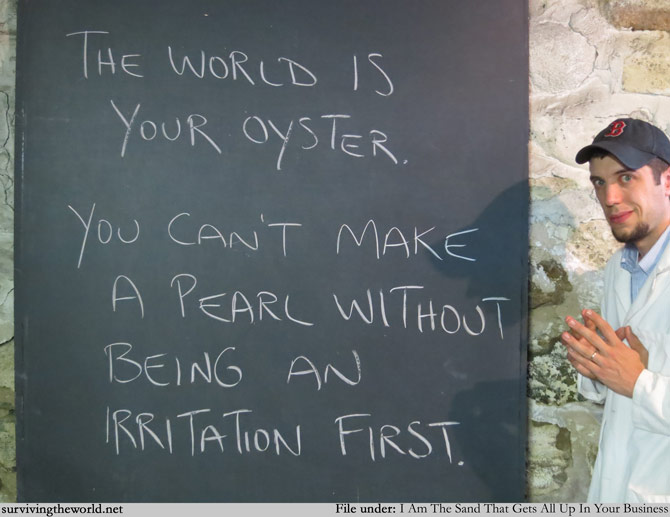 THE WORLD IS
YOUR OYSTER.
YOU CAN'T MAKE
A PEARL WITHOUT
BEING AN
IRRITATION FIRST.
B
survivingtheworld.net
File under: I Am The Sand That Gets All Up In Your Business